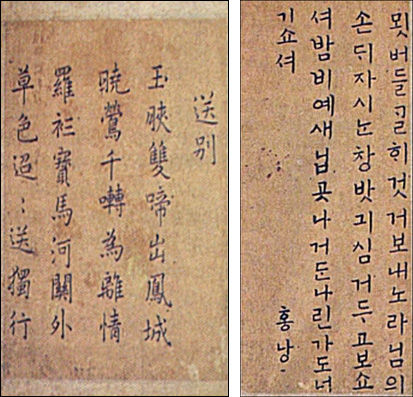 送别
玉脥雙啼出鳳城
曉鶯千囀為離情
羅衫寶馬河關外
草色迢〻送獨行
묏버들골히것거보내노라님의
손듸자시눈창밧긔심거두고보쇼
셔밤비예새닙곳나거든나린가도너
기쇼셔
홍낭